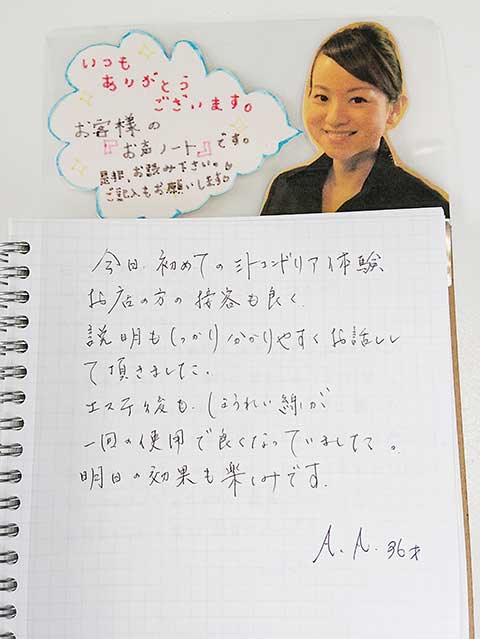 いつも
ありがとう
ございます。
お客様の
『お声ノート』です。
是非、お読み下さい。
ご記入もお願いします。
今日、初めてのミトコンドリア体験
お店の方の接客も良く、
説明もしっかり分かりやすくお話しし
て頂きました。
エステ後も、ほうれい線が
一回の使用で良くなっていました。
明日の効果も楽しみです。
A.A. 36才